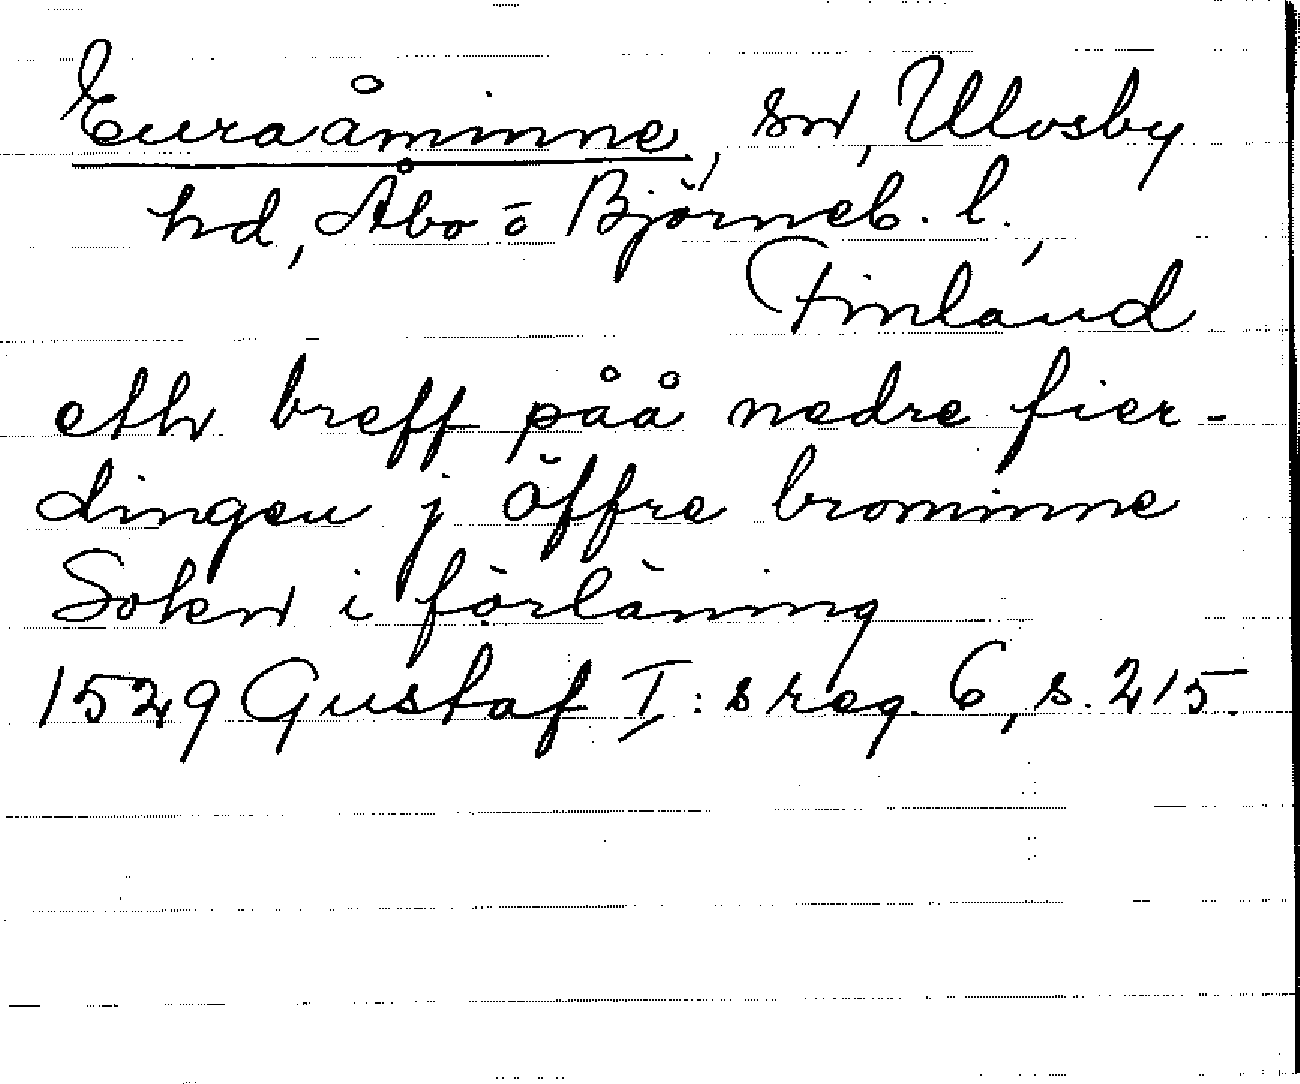 Euraåminne, sn, Ulvsby
hd, Åbo o Björneb. l.,
Finland
eth breff påå nedre fier-
dingen j öffre brominne
Sokn i förläning
1529 Gustaf I:s reg. 6, s. 215.